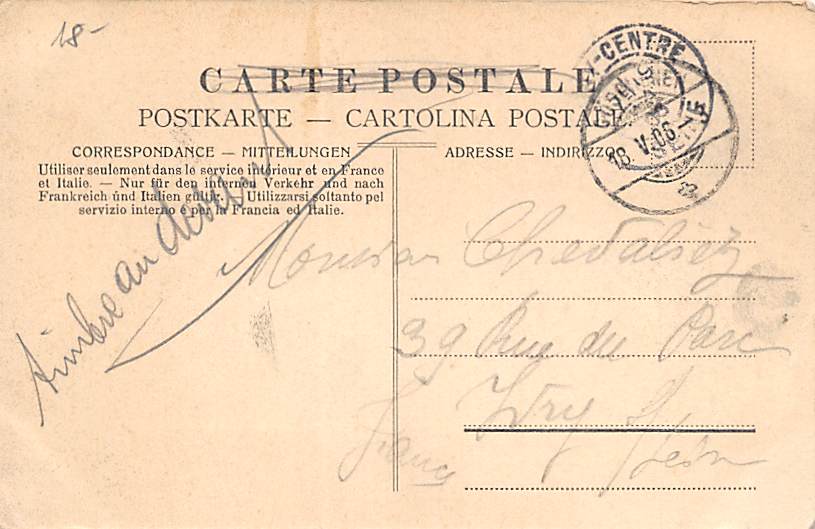 18-
CARTE POSTALE
POSTKARTE — CARTOLINA POSTALE
CORRESPONDANCE — MITTEILUNGEN
Utiliser seulement dans le service intérieur et en France
et Italie. — Nur für den internen Verkehr und nach
Frankreich und Italien gültig. — Utilizzarsi soltanto pel
servizio interno e per la Francia ed Italie.
ADRESSE — INDIRIZZO
-CENTRE
SEINE
18.V.06
timbre au
Monsieur Chevalier
39 Rue du Parc
Ivry s/Sein
France